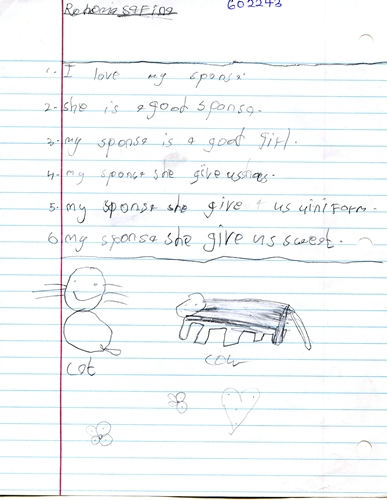 Safina 602243
1. I love my sponsa.
2. She is a good sponsa.
3. my sponsa is a good girl.
4. my sponsa she give us
5. my sponsa she give us uniform.
6. my sponsa she give us sweet.
cat cow